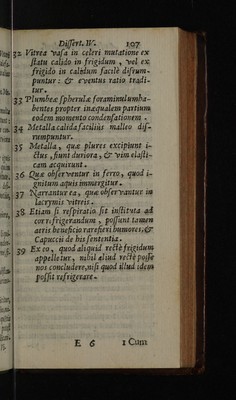 Dissert. IV. 107
32 Vitrea vasa in celeri mutatione ex
statu calido in frigidum, vel ex
frigido in calidum facilè disrum-
puntur: & eventus ratio tradi-
tur.
33 Plumbeæ sphærulæ foraminulum ha-
bentes propter inæqualem partium
eodem momento condensationem.
34 Metalla calida facilius malleo dis-
rumpuntur.
35 Metalla, quæ plures excipiunt i-
ctus, fiunt duriora, & vim elasti-
cam acquirunt.
36 Quæ observentur in ferro, quod i-
gnitum aquis immergitur.
37 Narrantur ea, quæ observantur in
lacrymis vitreis.
38 Etiam si respiratio sit instituta ad
cor refrigerandum, possunt tamen
aeris beneficio rarefieri humores, &
Capuccii de his sententia.
39 Ex eo, quod aliquid rectè frigidum
appelletur, nihil aliud rectè posse
nos concludere, nisi quod illud idem
possit refrigerare.
E 6 1 Cum